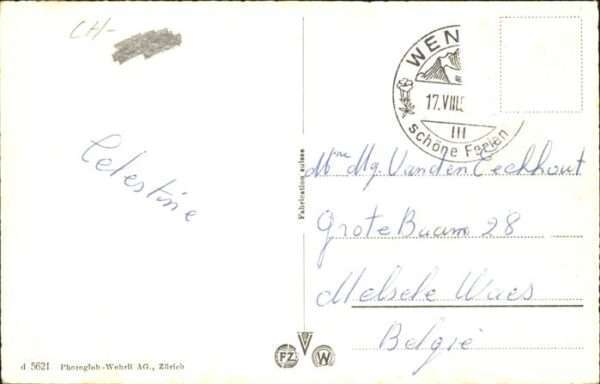 CH-
WEN
17.VIII.5
III
schöne Ferien
Celestine
Mme Mg. Vanden Eeckhout
Grote Baan 28
Melsele Waes
België
Fabrication suisse
FZ W
d 5621 Photoglob-Wehrli AG., Zürich